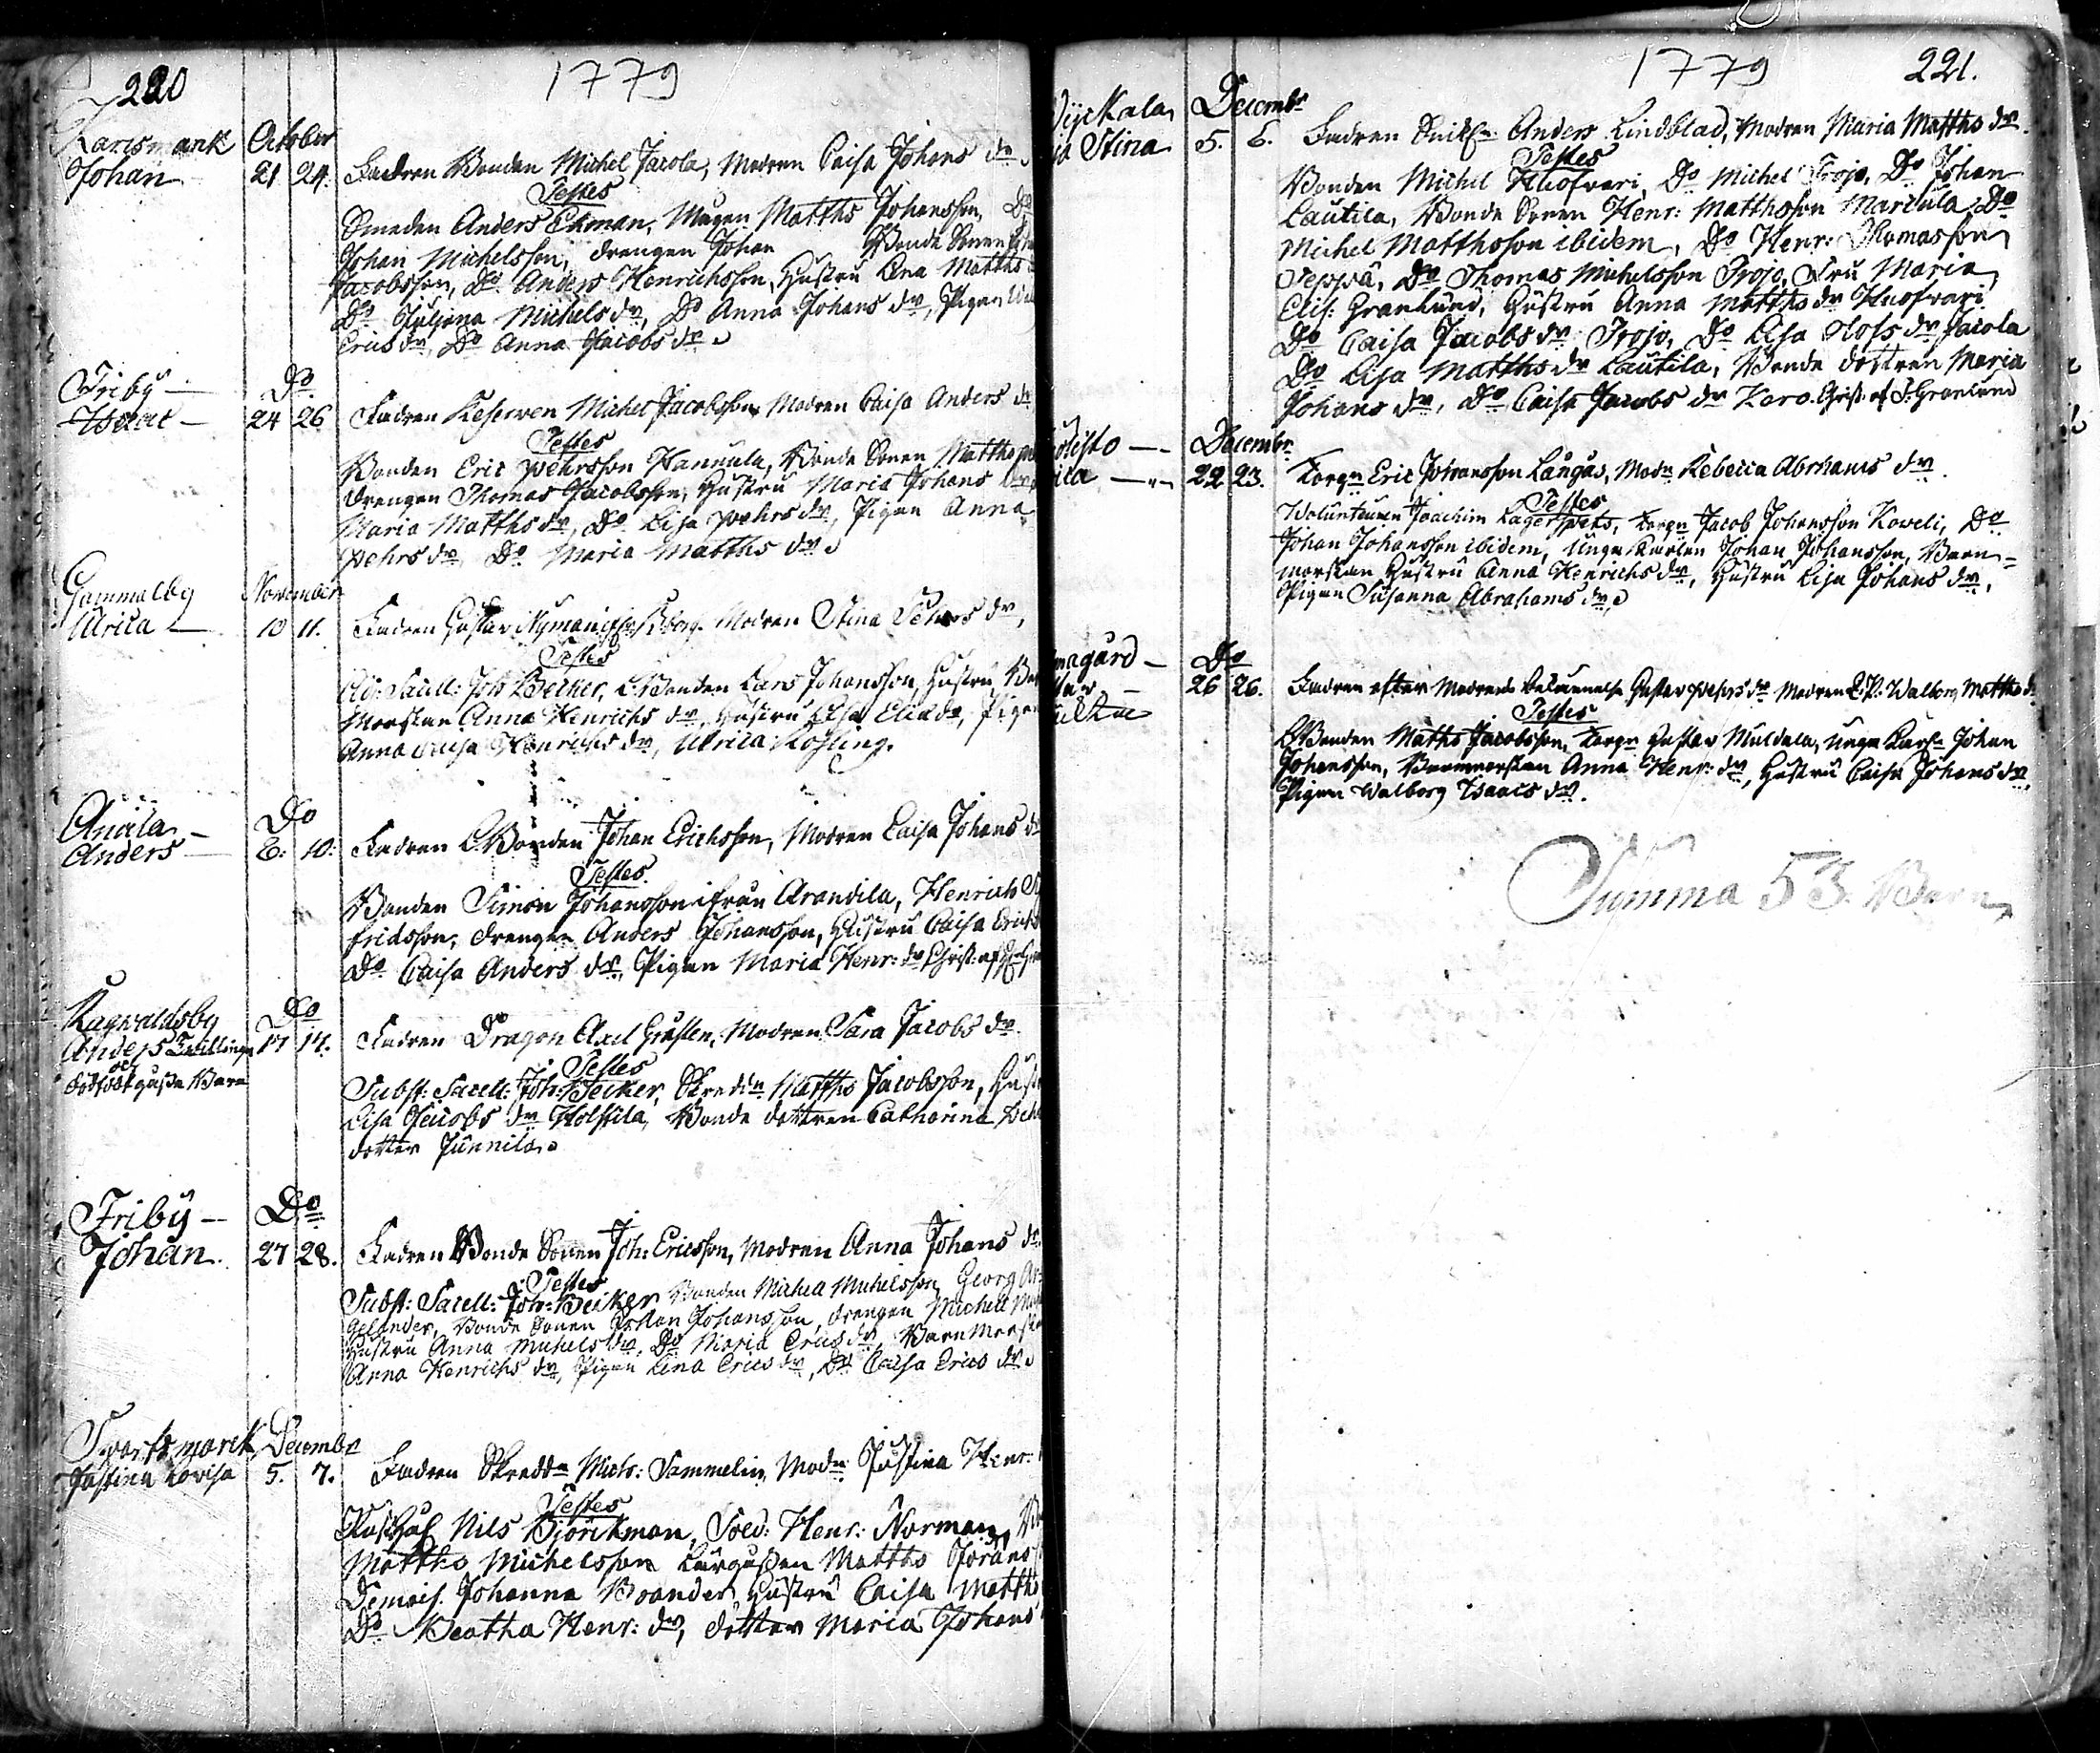 220
1779
Karismank October
Johan 21 24. Fadren Bonden Michel Jacola, Modren Caisa Johans dr
Testes
Smeden Anders Ekman, Mågen Matths Johansson, Do
Johan Michelsson, drengen Johan Bonde Sonen
Jacobsson, Do Anders Henrichsson, Hustru Lena Matths
Do Juliana Michels dr, Do Anna Johans dr, Pigan
Erics dr, Do Anna Jacobs dr
Friby Do
24 26 Fadren Reserven Michel Jacobsson, Modren Caisa Anders dr
Testes
Bonden Eric Pehrsson Hannula, Bonde Sonen Matths
drengen Thomas Jacobsson, Hustru Maria Johans dr
Maria Matths dr, Do Lisa Pehrs dr, Pigan Anna
Pehrs dr, Do Maria Matths dr
Gammelby November
Ulrica 10 11. Fadren Gustav Nyman Modren Stina Pehrs dr,
Testes
Sacell: Joh: Becker, Bonden Lars Johansson, Hustru
Morskan Anna Henrichs dr, Hustru Lisa Elia dr, Pigan
Anna Caisa Henrichs dr, Ulrica Kohling.
Anoila Do
Anders 6: 10: Fadren Bonden Johan Erichsson, Modren Caisa Johans dr
Testes.
Bonden Simon Johansson ifrån Arandila, Henrich
fridsson, drengen Anders Johansson, Hustru Caisa Erichs
Do Caisa Anders dr, Pigan Maria Henr: dr Christ: af
Ragwaldsby Do
Anders Twillingar 17 17. Fadren Dragon Axel Grusten, Modren Sara Jacobs dr.
och
dödfödt gosse Barn
Testes
Subst: Sacell: Joh: Becker, Skreddn Matths Jacobsson,
Lisa Jacobs dr Holstila, Bonde dottren Catharina
dotter Junnila
Friby Do
Johan 27 28. Fadren Bonde Sonen Joh: Ericsson, Modren Anna Johans dr.
Testes
Subst: Sacell: Joh: Becker Bonden Michel Michelsson, Georg
Gelander, Bonde Sonen Johansson, drengen Michell
Hustru Anna Michels dr, Do Maria Erics dr, Barn Morskan
Anna Henrichs dr, Pigan Lena Erics dr, Do Caisa Erics dr
Svartsmarck Decembr
Justina Lovisa 5. 7. Fadren Skreddn Mich: Sammelin, Modn Justina Henr:
Testes
Nils Björckman, Sold: Henr: Norman,
Matths Michelsson Matths Jörans
Demois. Johanna Boander, Hustru Caisa Matths
Do Beatha Henr: dr, dotter Maria Johans
1779 221.
Decembr
Stina 5. 6. Fadren Snickn Anders Lindblad, Modren Maria Matths dr.
Testes
Bonden Michel Huofvari, Do Michel Trojo, Do Johan
Lautila, Bonde Sonen Henr: Matthsson Marcula Do
Michel Matthsson ibidem, Do Henr: Thomasson
Seppä, Do Thomas Michelsson Trojo, Fru Maria
Elis: Granlund, Hustru Anna Matths dr Huofvari
Do Caisa Jacobs dr Trojo, Do Lisa Olofs dr Jacola
Do Lisa Matths dr Lautila, Bonde dottren Maria
Johans dr, Do Caisa Jacobs dr Karo. Christ. af J: Granlund
Decembr
22 23. Torpn Eric Johansson Långås, Modn Rebecca Abrahams dr.
Testes
Volunteuren Joachim Lagerspets, Torpn Jacob Johansson Koveli, Do
Johan Johansson ibidem, Unga Karlen Johan Johansson, Barn=
morskan Hustru Anna Henrichs dr, Hustru Lisa Johans dr,
Pigan Susanna Abrahams dr
Do
26 26. Fadren efter Modrens bekennelse Gustav Modren Walborg Matths dr
Testes
Bonden Matths Jacobsson, Torpn Gustav Muldala, Unga Karln Johan
Johansson, Barnmorskan Anna Henr: dr, Hustru Caisa Johans dr,
Pigan Walborg Isaacs dr.
Summa 53. Barn